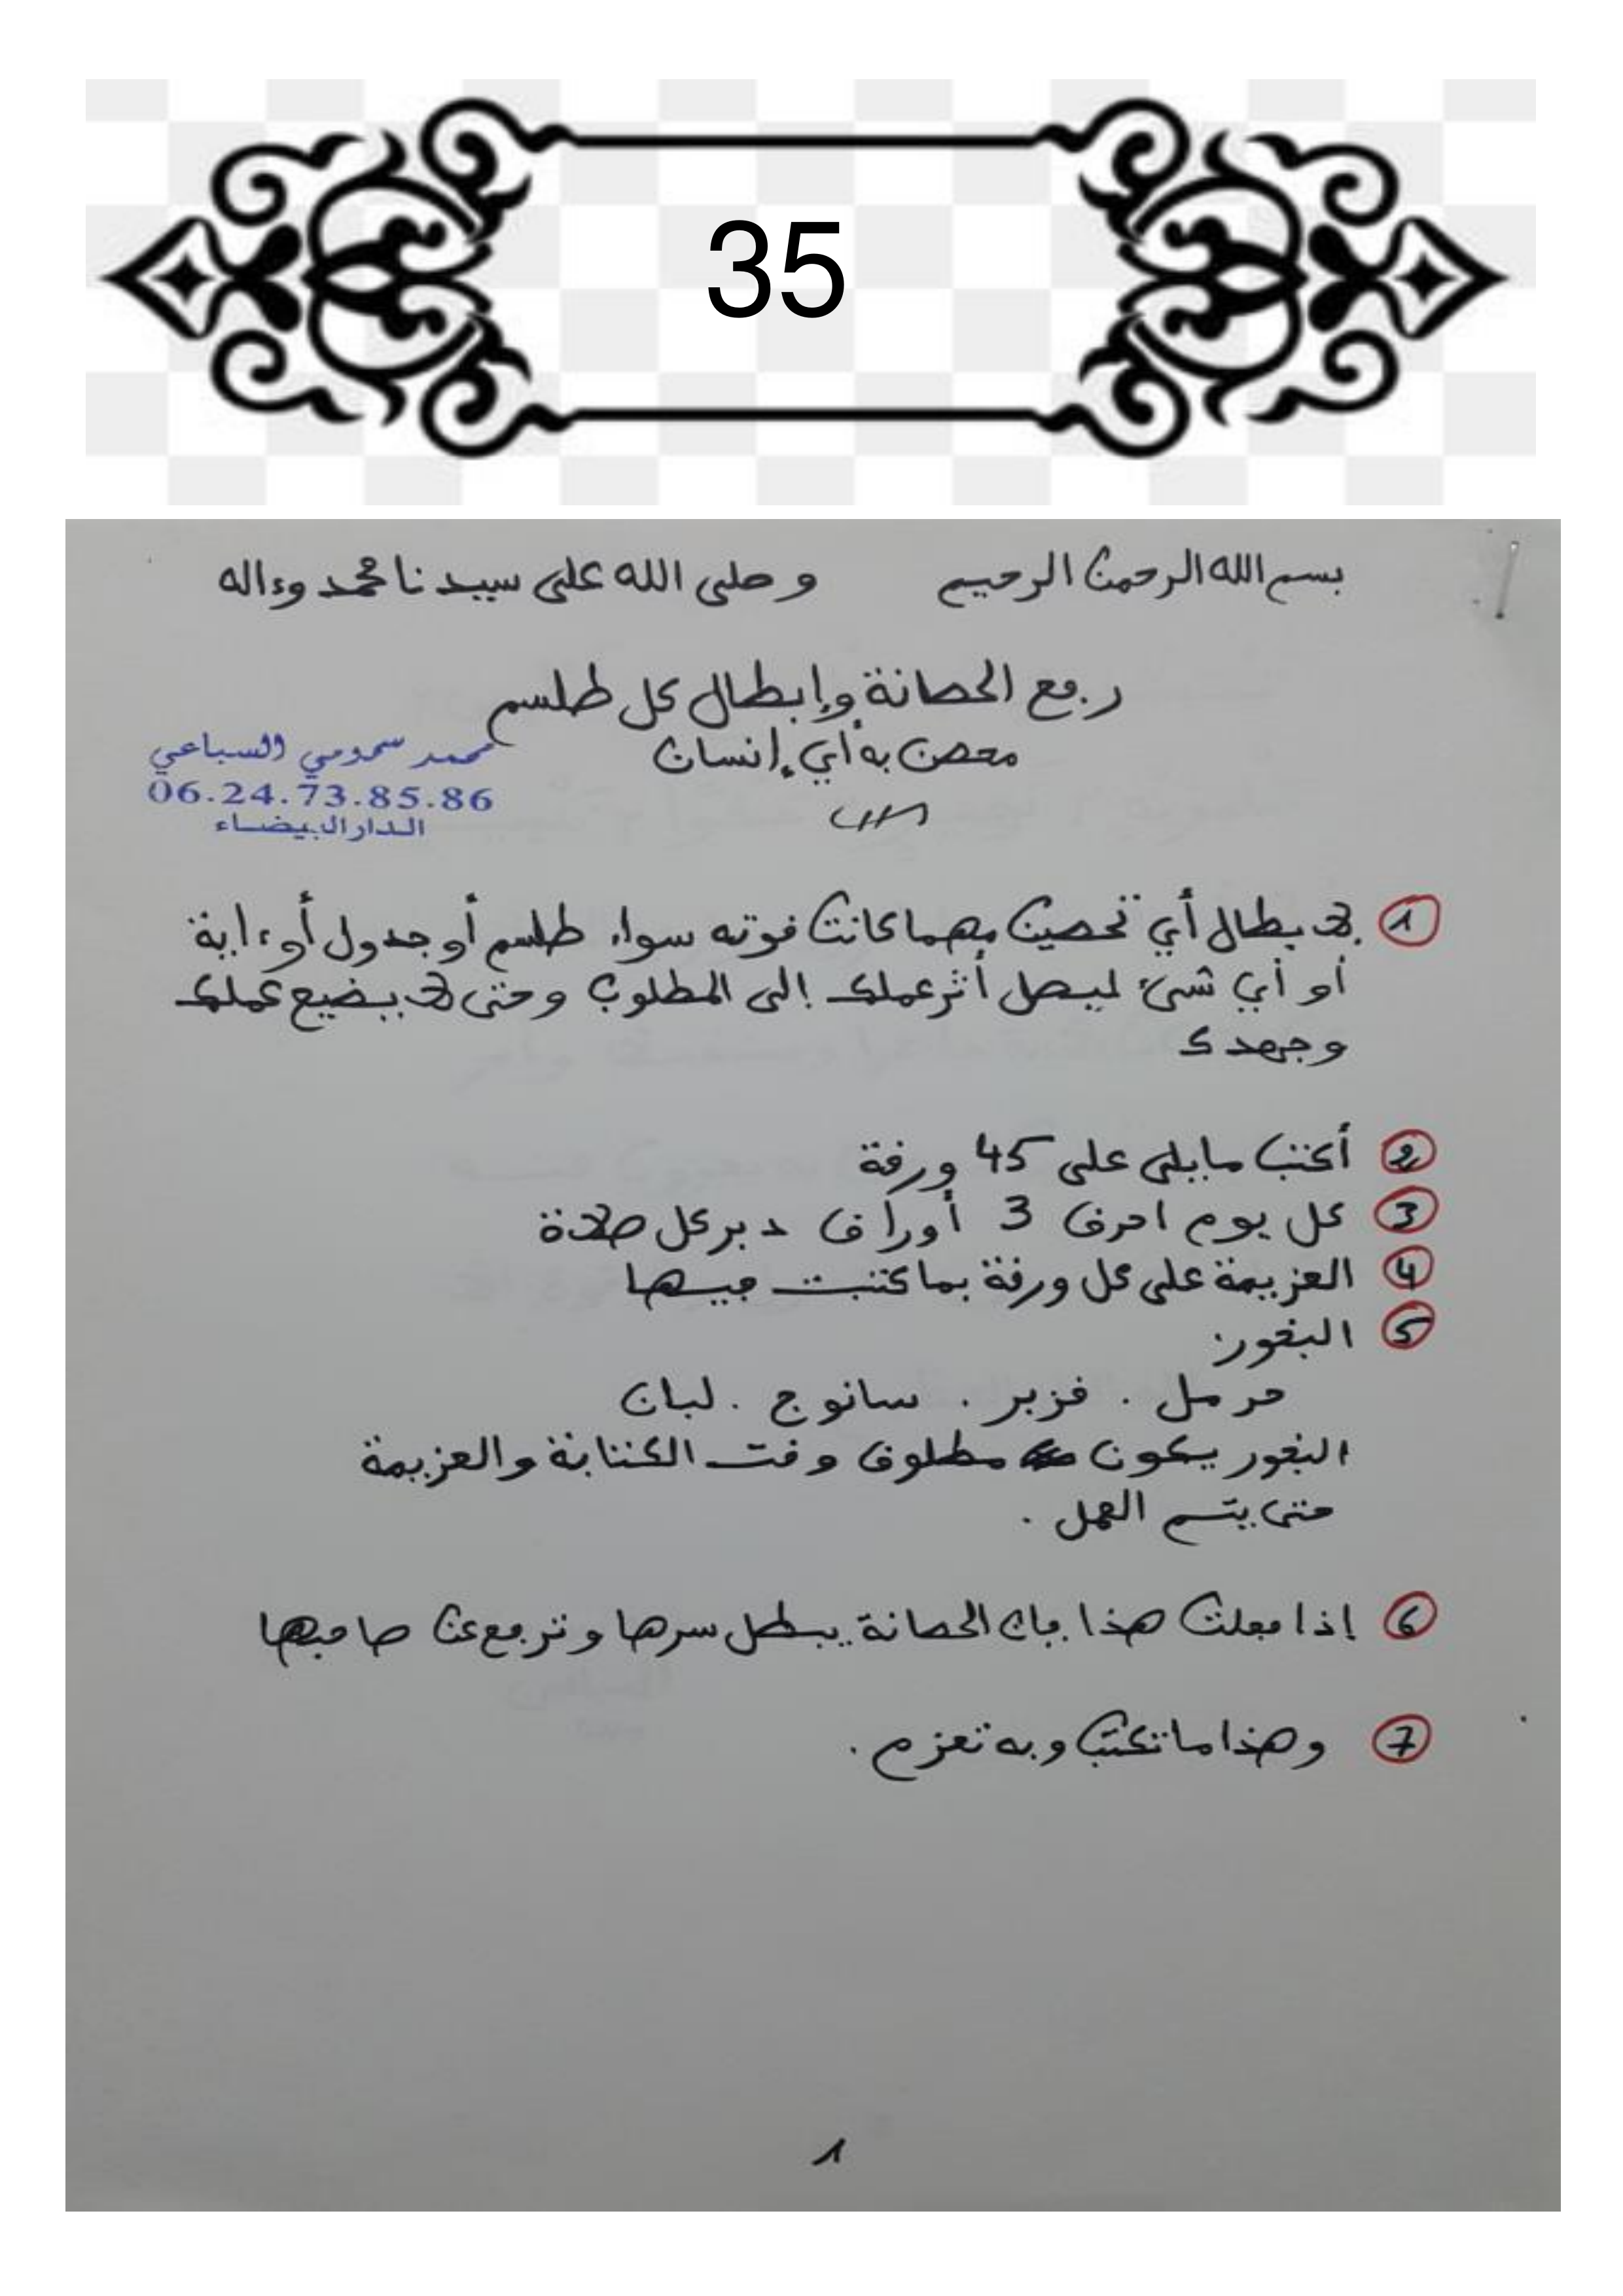 35
بسم الله الرحمن الرحيم وصلى الله على سيدنا محمد وءاله
رفع الحصانة وإبطال كل طلسم
محصن به أي إنسان
محمد سمومي السباعي
06.24.73.85.86
الدار البيضاء
1 لإبطال أي تحصين مهما كانت قوته سواء طلسم أو جدول أو ءاية
أو أي شيء ليصل أثر عملك إلى المطلوب وحتى لا يضيع عملك
وجهدك
2 أكتب مايلي على 45 ورقة
3 كل يوم احرق 3 أوراق دبر كل صلاة
4 العزيمة على كل ورقة بما كتبت فيها
5 البخور:
حرمل . قزبر . سانوج . لبان
البخور يكون مطلوق وقت الكتابة والعزيمة
حتى يتم العمل .
6 إذا فعلت هذا فإن الحصانة يبطل سرها وترفع عن صاحبها
7 وهذا ما تكتب وبه تعزم .
1